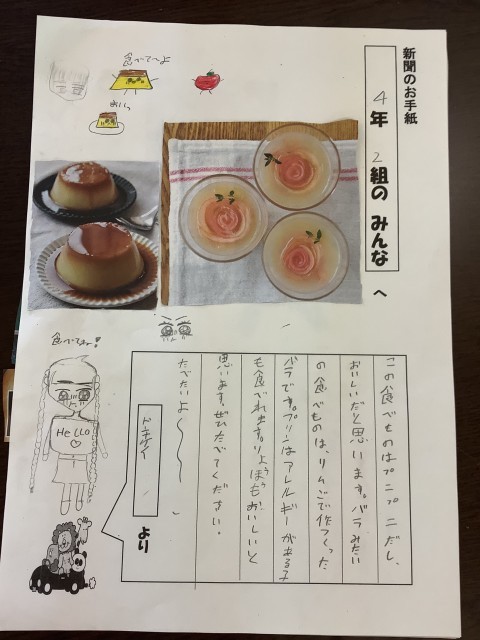 新聞のお手紙
4年 2組の みんな へ
食べてーよ
おいっ
この食べものはプニプニだし、
おいしいだと思います。バラみたい
の食べものは、リムごで作つくった
バラです。プリンはアレルギーがある子
も食べれます。りょうほうもおいしいと
思います。ぜひたべてください。
たべたいよ〜〜〜
より
食べてねっ!
HeLLO